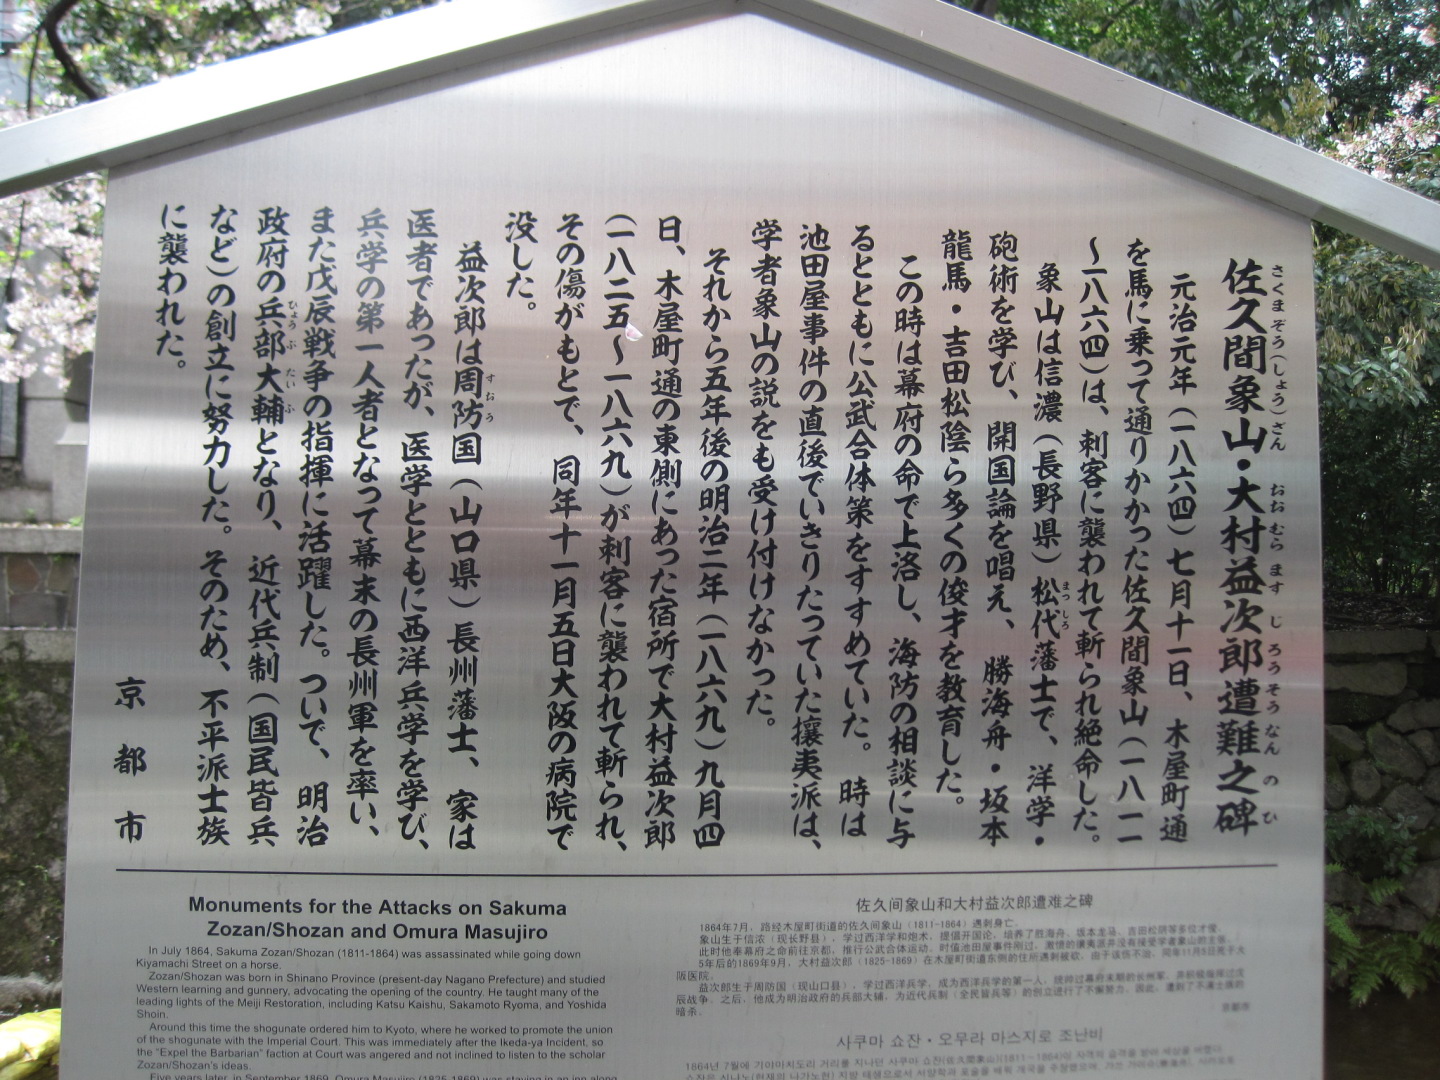 佐久間象山・大村益次郎遭難之碑
さくまぞう(しょう)ざん おおむらますじろうそうなんのひ
元治元年(一八六四)七月十一日、木屋町通
を馬に乗って通りかかった佐久間象山(一八一一
〜一八六四)は、刺客に襲われて斬られ絶命した。
象山は信濃(長野県)松代藩士で、洋学・
まつしろ
砲術を学び、開国論を唱え、勝海舟・坂本
龍馬・吉田松陰ら多くの俊才を教育した。
この時は幕府の命で上洛し、海防の相談に与
るとともに公武合体策をすすめていた。時は
池田屋事件の直後でいきりたっていた攘夷派は、
学者象山の説をも受け付けなかった。
それから五年後の明治二年(一八六九)九月四
日、木屋町通の東側にあった宿所で大村益次郎
(一八二五〜一八六九)が刺客に襲われて斬られ、
その傷がもとで、同年十一月五日大阪の病院で
没した。
益次郎は周防国(山口県)長州藩士、家は
すおう
医者であったが、医学とともに西洋兵学を学び、
兵学の第一人者となって幕末の長州軍を率い、
また戊辰戦争の指揮に活躍した。ついで、明治
政府の兵部大輔となり、近代兵制(国民皆兵
ひょうぶたいふ
など)の創立に努力した。そのため、不平派士族
に襲われた。
京都市
Monuments for the Attacks on Sakuma
Zozan/Shozan and Omura Masujiro
In July 1864, Sakuma Zozan/Shozan (1811-1864) was assassinated while going down
Kiyamachi Street on a horse.
Zozan/Shozan was born in Shinano Province (present-day Nagano Prefecture) and studied
Western learning and gunnery, advocating the opening of the country. He taught many of the
leading lights of the Meiji Restoration, including Katsu Kaishu, Sakamoto Ryoma, and Yoshida
Shoin.
Around this time the shogunate ordered him to Kyoto, where he worked to promote the union
of the shogunate with the Imperial Court. This was immediately after the Ikeda-ya Incident, so
the "Expel the Barbarian" faction at Court was angered and not inclined to listen to the scholar
Zozan/Shozan's ideas.
Five years later, in September 1869, Omura Masujiro (1825-1869) was staying in an inn along
佐久间象山和大村益次郎遭难之碑
1864年7月，路经木屋町街道的佐久间象山（1811-1864）遇刺身亡。
象山生于信浓（现长野县），学过西洋学和炮术，提倡开国论，培养了胜海舟、坂本龙马、吉田松阴等多位才俊。
此时他奉幕府之命前往京都，推行公武合体运动。时值池田屋事件刚过，激愤的攘夷派并没有接受学者象山的主张。
5年后的1869年9月，大村益次郎（1825-1869）在木屋町街道东侧的住所遇刺被砍，由于该伤不治，同年11月5日死于大
阪医院。
益次郎生于周防国（现山口县），学过西洋兵学，成为西洋兵学的第一人，统帅过幕府末期的长州军，并积极指挥过戊
辰战争。之后，他成为明治政府的兵部大辅，为近代兵制（全民皆兵等）的创立进行了不懈努力。因此，遭到了不满士族的
暗杀。
京都市
사쿠마 쇼잔・오무라 마스지로 조난비
1864년 7월에 기야마치도리 거리를 지나던 사쿠마 쇼잔(佐久間象山)(1811~1864)이 자객의 습격을 받아 세상을 떠났다